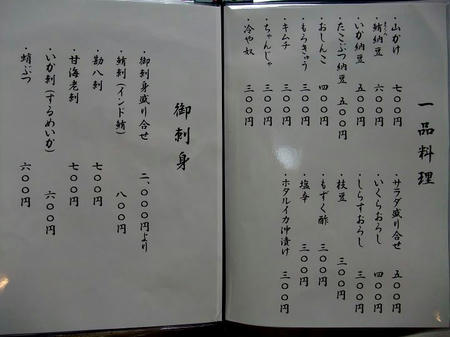 一品料理
・山かけ 七〇〇円
・鮪納豆 六〇〇円
・いか納豆 五〇〇円
・たこぶつ納豆 五〇〇円
・おしんこ 四〇〇円
・もろきゅう 三〇〇円
・キムチ 三〇〇円
・ちゃんじゃ 三〇〇円
・冷や奴 三〇〇円
・サラダ盛り合せ 五〇〇円
・いくらおろし 四〇〇円
・しらすおろし 三〇〇円
・枝豆 三〇〇円
・もずく酢 三〇〇円
・塩辛 三〇〇円
・ホタルイカ沖漬け 三〇〇円
御刺身
・御刺身盛り合せ 二、〇〇〇円より
・鮪刺(インド鮪) 八〇〇円
・勘八刺 七〇〇円
・甘海老刺 七〇〇円
・いか刺(するめいか) 六〇〇円
・蛸ぶつ 六〇〇円